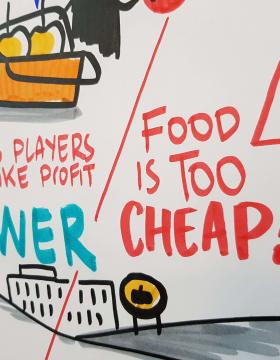 PLAYERS
PROFIT
FOOD
IS TOO
CHEAP!